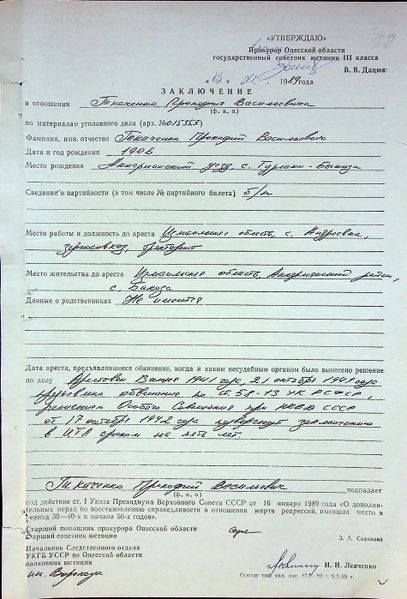 «УТВЕРЖДАЮ»
Прокурор Одесской области
государственный советник юстиции III класса
В. В. Дацюк
1989 года
ЗАКЛЮЧЕНИЕ
в отношении Ткаченко Прокофия Васильевича
(ф., и., о.)
по материалам уголовного дела (арх. №015355)
Фамилия, имя, отчество Ткаченко Прокофий Васильевич
Дата и год рождения 1906
Место рождения Аккерманский уезд, с.
Сведения о партийности (в том числе № партийного билета) б/п
Место работы и должность до ареста Измаильская область, с. Андреевка,
зерносовхоз,
Место жительства до ареста Измаильская область, район,
с.
Данные о родственниках Не имеются
Дата ареста, предъявлявшееся обвинение, когда и каким несудебным органом было вынесено решение
по делу Арестован 1941 года, 21 октября 1941 года
предъявлено обвинение по ст. 58-13 УК РСФСР,
решением Особого Совещания при НКВД СССР
от 17 октября 1942 года заключению
в ИТЛ сроком на пять лет
Ткаченко Прокофий Васильевич подпадает
(ф., и., о.)
под действие ст. I Указа Президиума Верховного Совета СССР от 16 января 1989 года «О дополни-
тельных мерах по восстановлению справедливости в отношении жертв репрессий, имевших место в
период 30—40-х и начала 50-х годов».
Старший помощник прокурора Одесской области
старший советник юстиции
З. А. Садикова
Начальник Следственного отдела
УКГБ УССР по Одесской области
полковник юстиции
И. И. Левченко